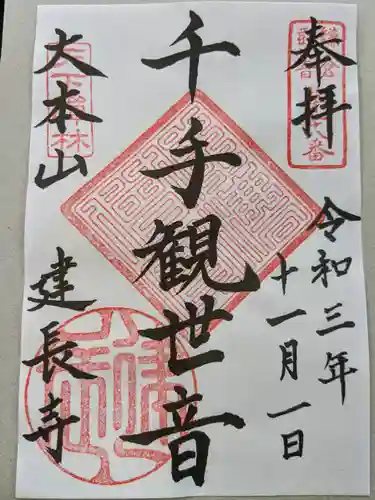 奉拝
令和三年
十一月一日
千手観世音
大本山
建長寺